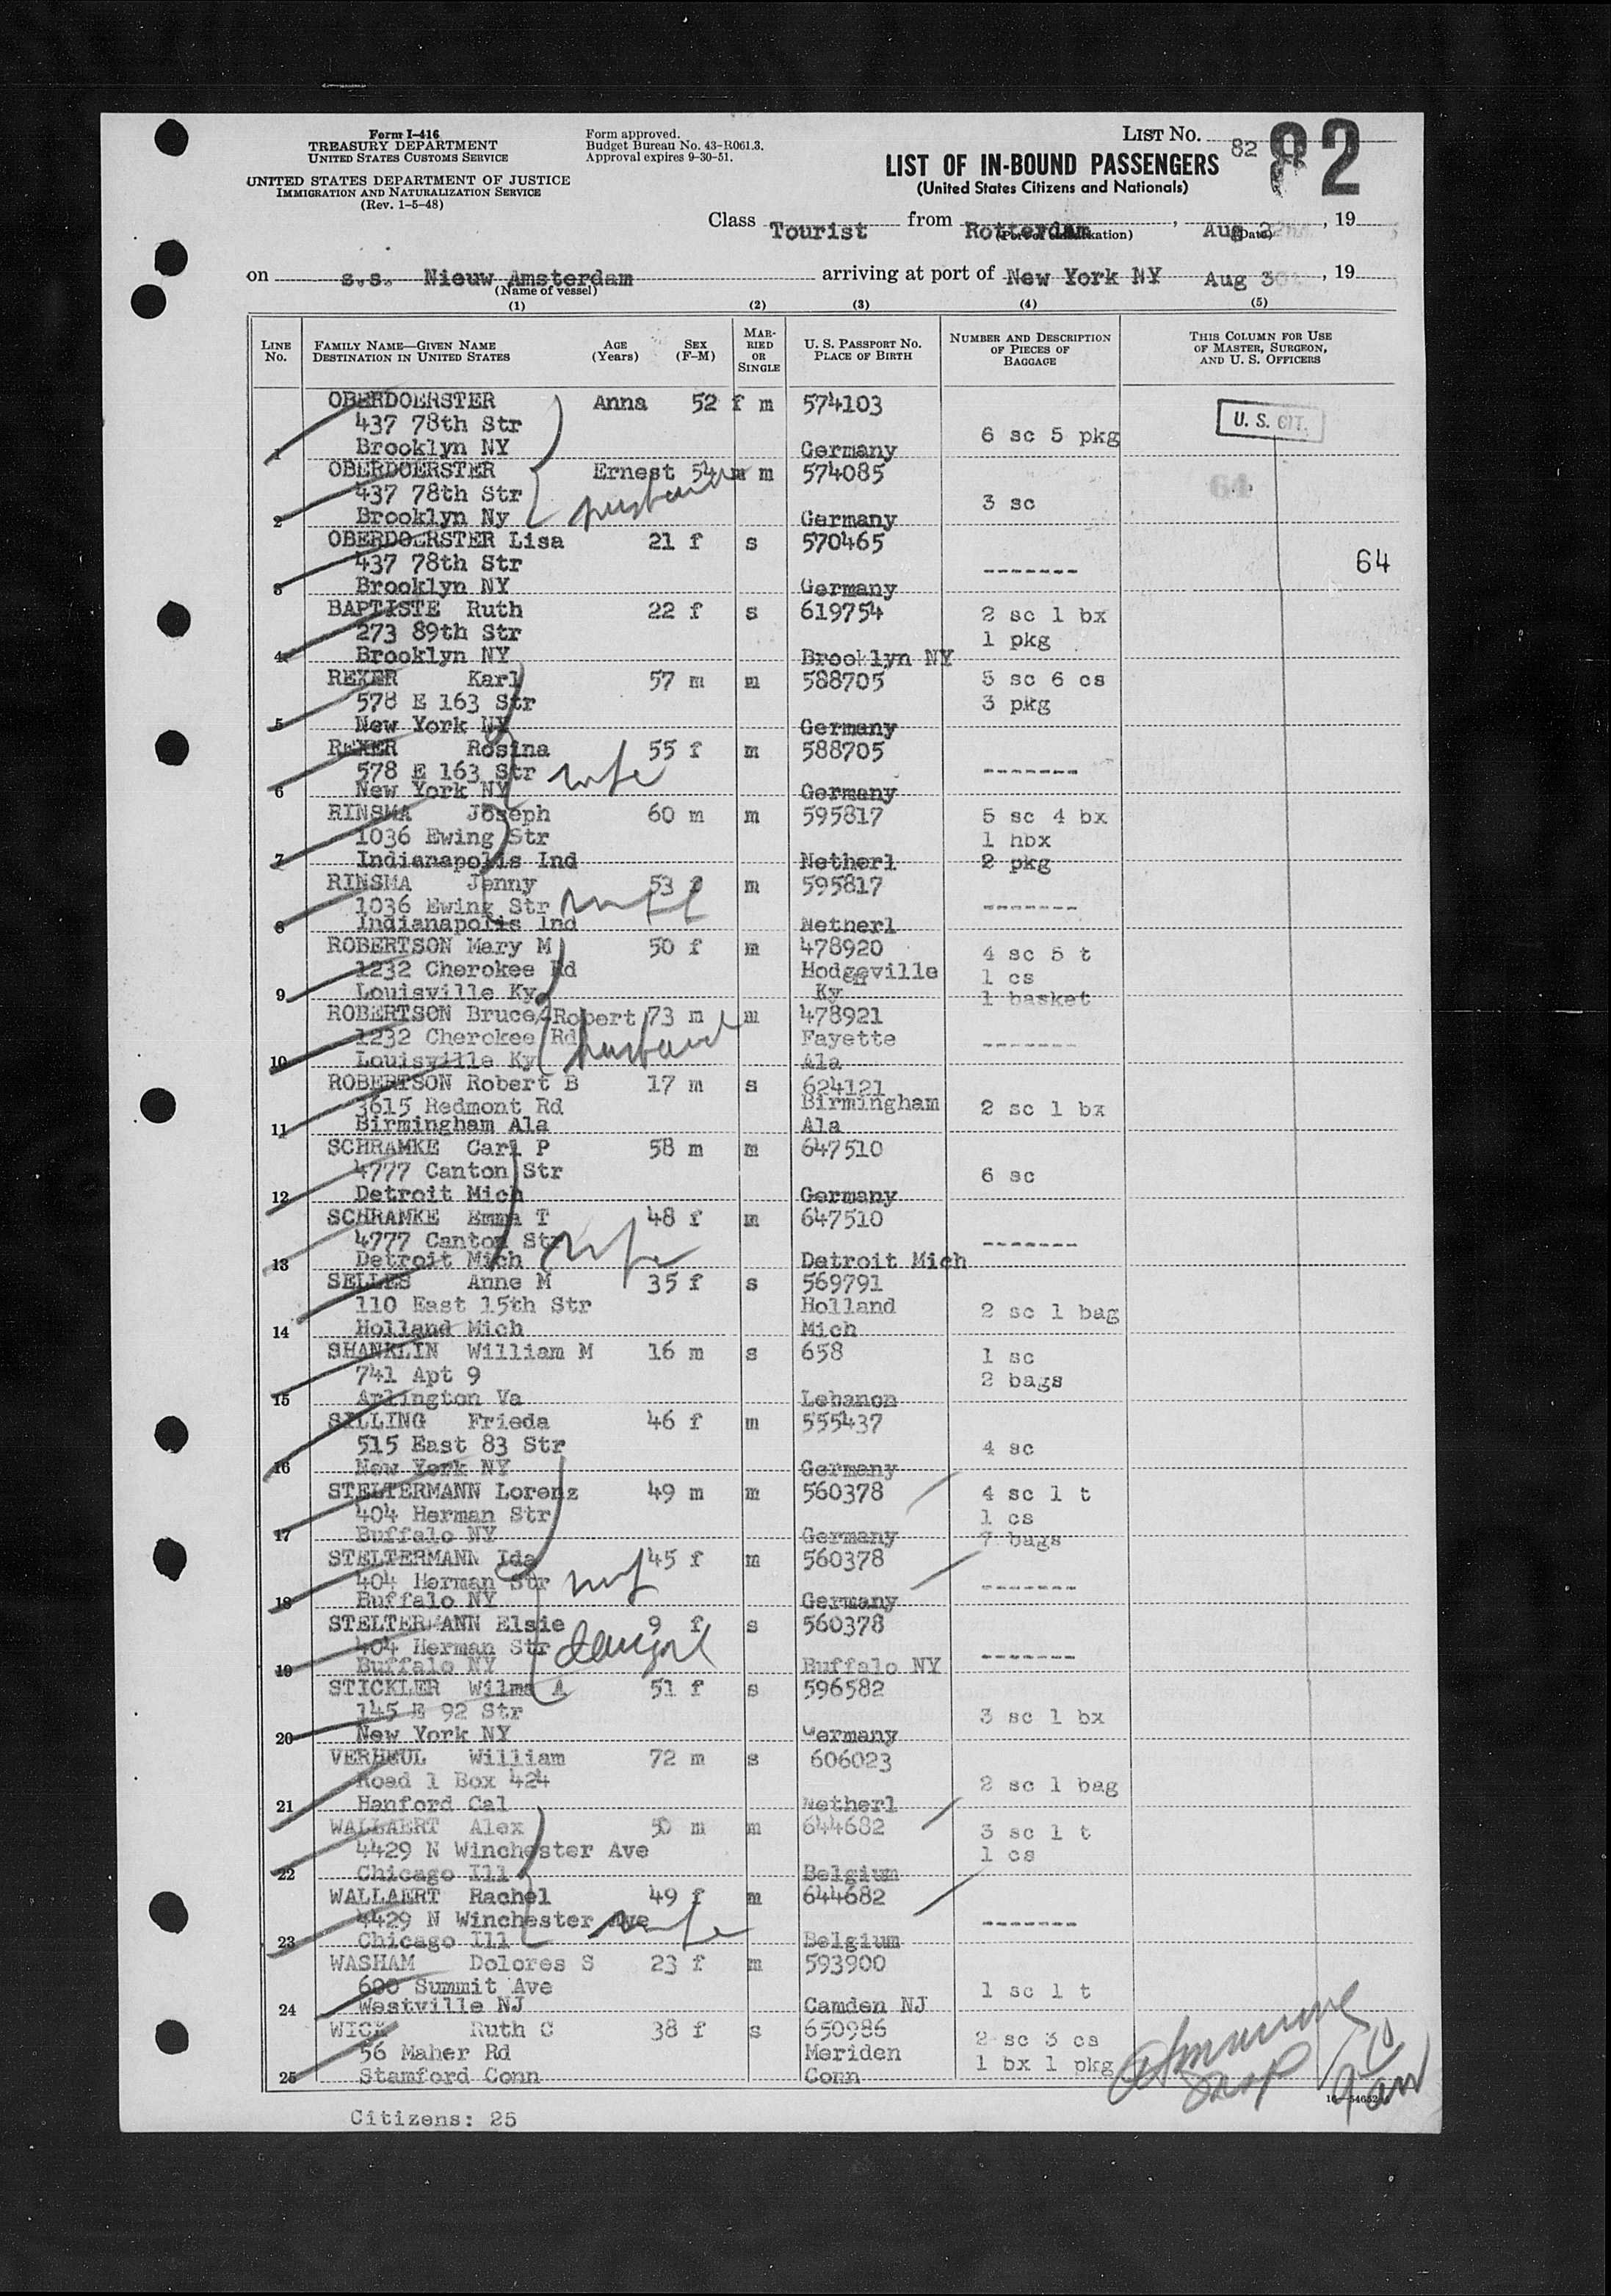 Form I-416
TREASURY DEPARTMENT
UNITED STATES CUSTOMS SERVICE
UNITED STATES DEPARTMENT OF JUSTICE
IMMIGRATION AND NATURALIZATION SERVICE
(Rev. 1-5-48)
Form approved.
Budget Bureau No. 43-R061.3.
Approval expires 9-30-51.
LIST NO. 82 82
LIST OF IN-BOUND PASSENGERS
(United States Citizens and Nationals)
Class Tourist from Rotterdam, Aug 22, 19
(Port of embarkation) (Date)
on s.s. Nieuw Amsterdam arriving at port of New York NY Aug 30, 19
(Name of vessel)
(1) (2) (3) (4) (5)
LINE NO. FAMILY NAME—GIVEN NAME DESTINATION IN UNITED STATES AGE (Years) SEX (F-M) MARRIED OR SINGLE U. S. PASSPORT NO. PLACE OF BIRTH NUMBER AND DESCRIPTION OF PIECES OF BAGGAGE THIS COLUMN FOR USE OF MASTER, SURGEON, AND U. S. OFFICERS
OBERDOERSTER Anna 52 f m 574103
437 78th Str 6 sc 5 pkg U. S. CIT.
1 Brooklyn NY Germany
OBERDOERSTER Ernest 54 m m 574085
437 78th Str husband 3 sc 64
2 Brooklyn Ny Germany
OBERDOERSTER Lisa 21 f s 570465
437 78th Str ------- 64
3 Brooklyn NY Germany
BAPTISTE Ruth 22 f s 619754 2 sc 1 bx
273 89th Str 1 pkg
4 Brooklyn NY Brooklyn NY
REXER Karl 57 m m 588705 5 sc 6 cs
578 E 163 Str 3 pkg
5 New York NY Germany
REXER Rosina 55 f m 588705
578 E 163 Str wife -------
6 New York NY Germany
RINSMA Joseph 60 m m 595817 5 sc 4 bx
1036 Ewing Str 1 hbx
7 Indianapolis Ind Netherl 2 pkg
RINSMA Jenny 53 f m 595817
1036 Ewing Str wife -------
8 Indianapolis Ind Netherl
ROBERTSON Mary M 50 f m 478920 4 sc 5 t
1232 Cherokee Rd Hodgeville 1 cs
9 Louisville Ky Ky 1 basket
ROBERTSON Bruce, Robert 73 m m 478921
1232 Cherokee Rd husband Fayette -------
10 Louisville Ky Ala
ROBERTSON Robert B 17 m s 624121
3615 Redmont Rd Birmingham 2 sc 1 bx
11 Birmingham Ala Ala
SCHRAMKE Carl P 58 m m 647510
4777 Canton Str 6 sc
12 Detroit Mich Germany
SCHRAMKE Emma T 48 f m 647510
4777 Canton Str wife -------
13 Detroit Mich Detroit Mich
SELLES Anne M 35 f s 569791
110 East 15th Str Holland 2 sc 1 bag
14 Holland Mich Mich
SHANKLIN William M 16 m s 658 1 sc
741 Apt 9 2 bags
15 Arlington Va Lebanon
SILLING Frieda 46 f m 555437
515 East 83 Str 4 sc
16 New York NY Germany
STELTERMANN Lorenz 49 m m 560378 4 sc 1 t
404 Herman Str 1 cs
17 Buffalo NY Germany 7 bags
STELTERMANN Ida 45 f m 560378
404 Herman Str wife -------
18 Buffalo NY Germany
STELTERMANN Elsie 9 f s 560378
404 Herman Str -------
19 Buffalo NY Buffalo NY
STICKLER Wilma A 51 f s 596582
145 E 92 Str 3 sc 1 bx
20 New York NY Germany
VERHEUL William 72 m s 606023
Road 1 Box 424 2 sc 1 bag
21 Hanford Cal Netherl
WALLAERT Alex 50 m m 644682 3 sc 1 t
4429 N Winchester Ave 1 cs
22 Chicago Ill Belgium
WALLAERT Rachel 49 f m 644682
4429 N Winchester Ave wife -------
23 Chicago Ill Belgium
WASHAM Dolores S 23 f m 593900
600 Summit Ave 1 sc 1 t
24 Westville NJ Camden NJ
WICK Ruth C 38 f s 650986 2 sc 3 cs
56 Maher Rd Meriden 1 bx 1 pkg
25 Stamford Conn Conn
Citizens: 25